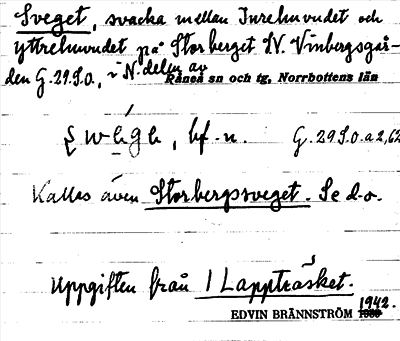 Sveget, svacka mellan Inrehuvudet och
Yttrehuvudet på Storberget SV. Vinbergsgår-
den G.29.S.o., i N. delen av
Råneå sn och tg, Norrbottens län
bf. n. G.29 S.o.a2,62
Kallas även Storbergsveget. Se d.o.
Uppgiften från 1 Lappträsket.
1942.
EDVIN BRÄNNSTRÖM